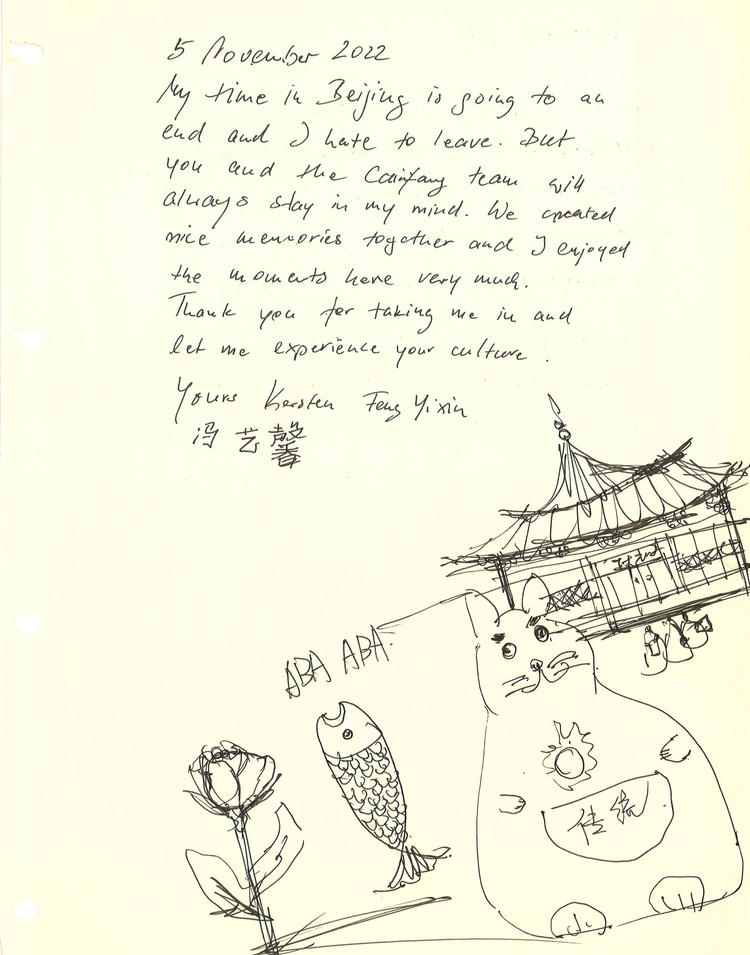 5 November 2022
My time in Beijing is going to an
end and I hate to leave. But
you and the team will
always stay in my mind. We created
nice memories together and I enjoyed
the moments here very much.
Thank you for taking me in and
let me experience your culture.
Yours Kersten Feng Yixin
冯艺馨
ABA ABA
传统